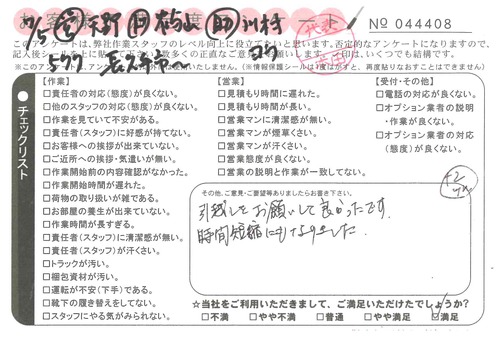 No 044408
このアンケートは、弊社作業スタッフのレベル向上に役立てたいと思います。否定的なアンケートになりますので、
記入後シール上に貼って下さい。数多くの正直なご意見をお聞かせ下さい。いつでも結構です。
【作業】
□責任者の対応(態度)が良くない。
□他のスタッフの対応(態度)が良くない。
□作業を見ていて不安がある。
□責任者(スタッフ)に好感が持てない。
□お客様への挨拶が出来ていない。
□ご近所への挨拶・気遣いが無い。
□作業開始前の内容確認がなかった。
□作業開始時間が遅れた。
□荷物の取り扱いが雑である。
□お部屋の養生が出来ていない。
□作業時間が長すぎる。
□責任者(スタッフ)に清潔感が無い。
□責任者(スタッフ)が汗くさい。
□トラックが汚い。
□梱包資材が汚い。
□運転が不安(下手)である。
□靴下の履き替えをしてない。
□スタッフにやる気がみられない。
【営業】
□見積もり時間に遅れた。
□見積もり時間が長い。
□営業マンに清潔感が無い。
□営業マンが煙草くさい。
□営業マンが汗くさい。
□営業態度が良くない。
□営業の説明と作業が一致してない。
【受付・その他】
□電話の対応が良くない。
□オプション業者の説明
・作業が良くない。
□オプション業者の対応
(態度)が良くない。
チェックリスト
その他、ご意見・ご要望等ありましたらお書き下さい。
引越しをお願いして良かったです。
時間短縮にもなりました。
☆当社をご利用いただきまして、ご満足いただけたでしょうか?
□不満 □やや不満 □普通 □やや満足 □満足